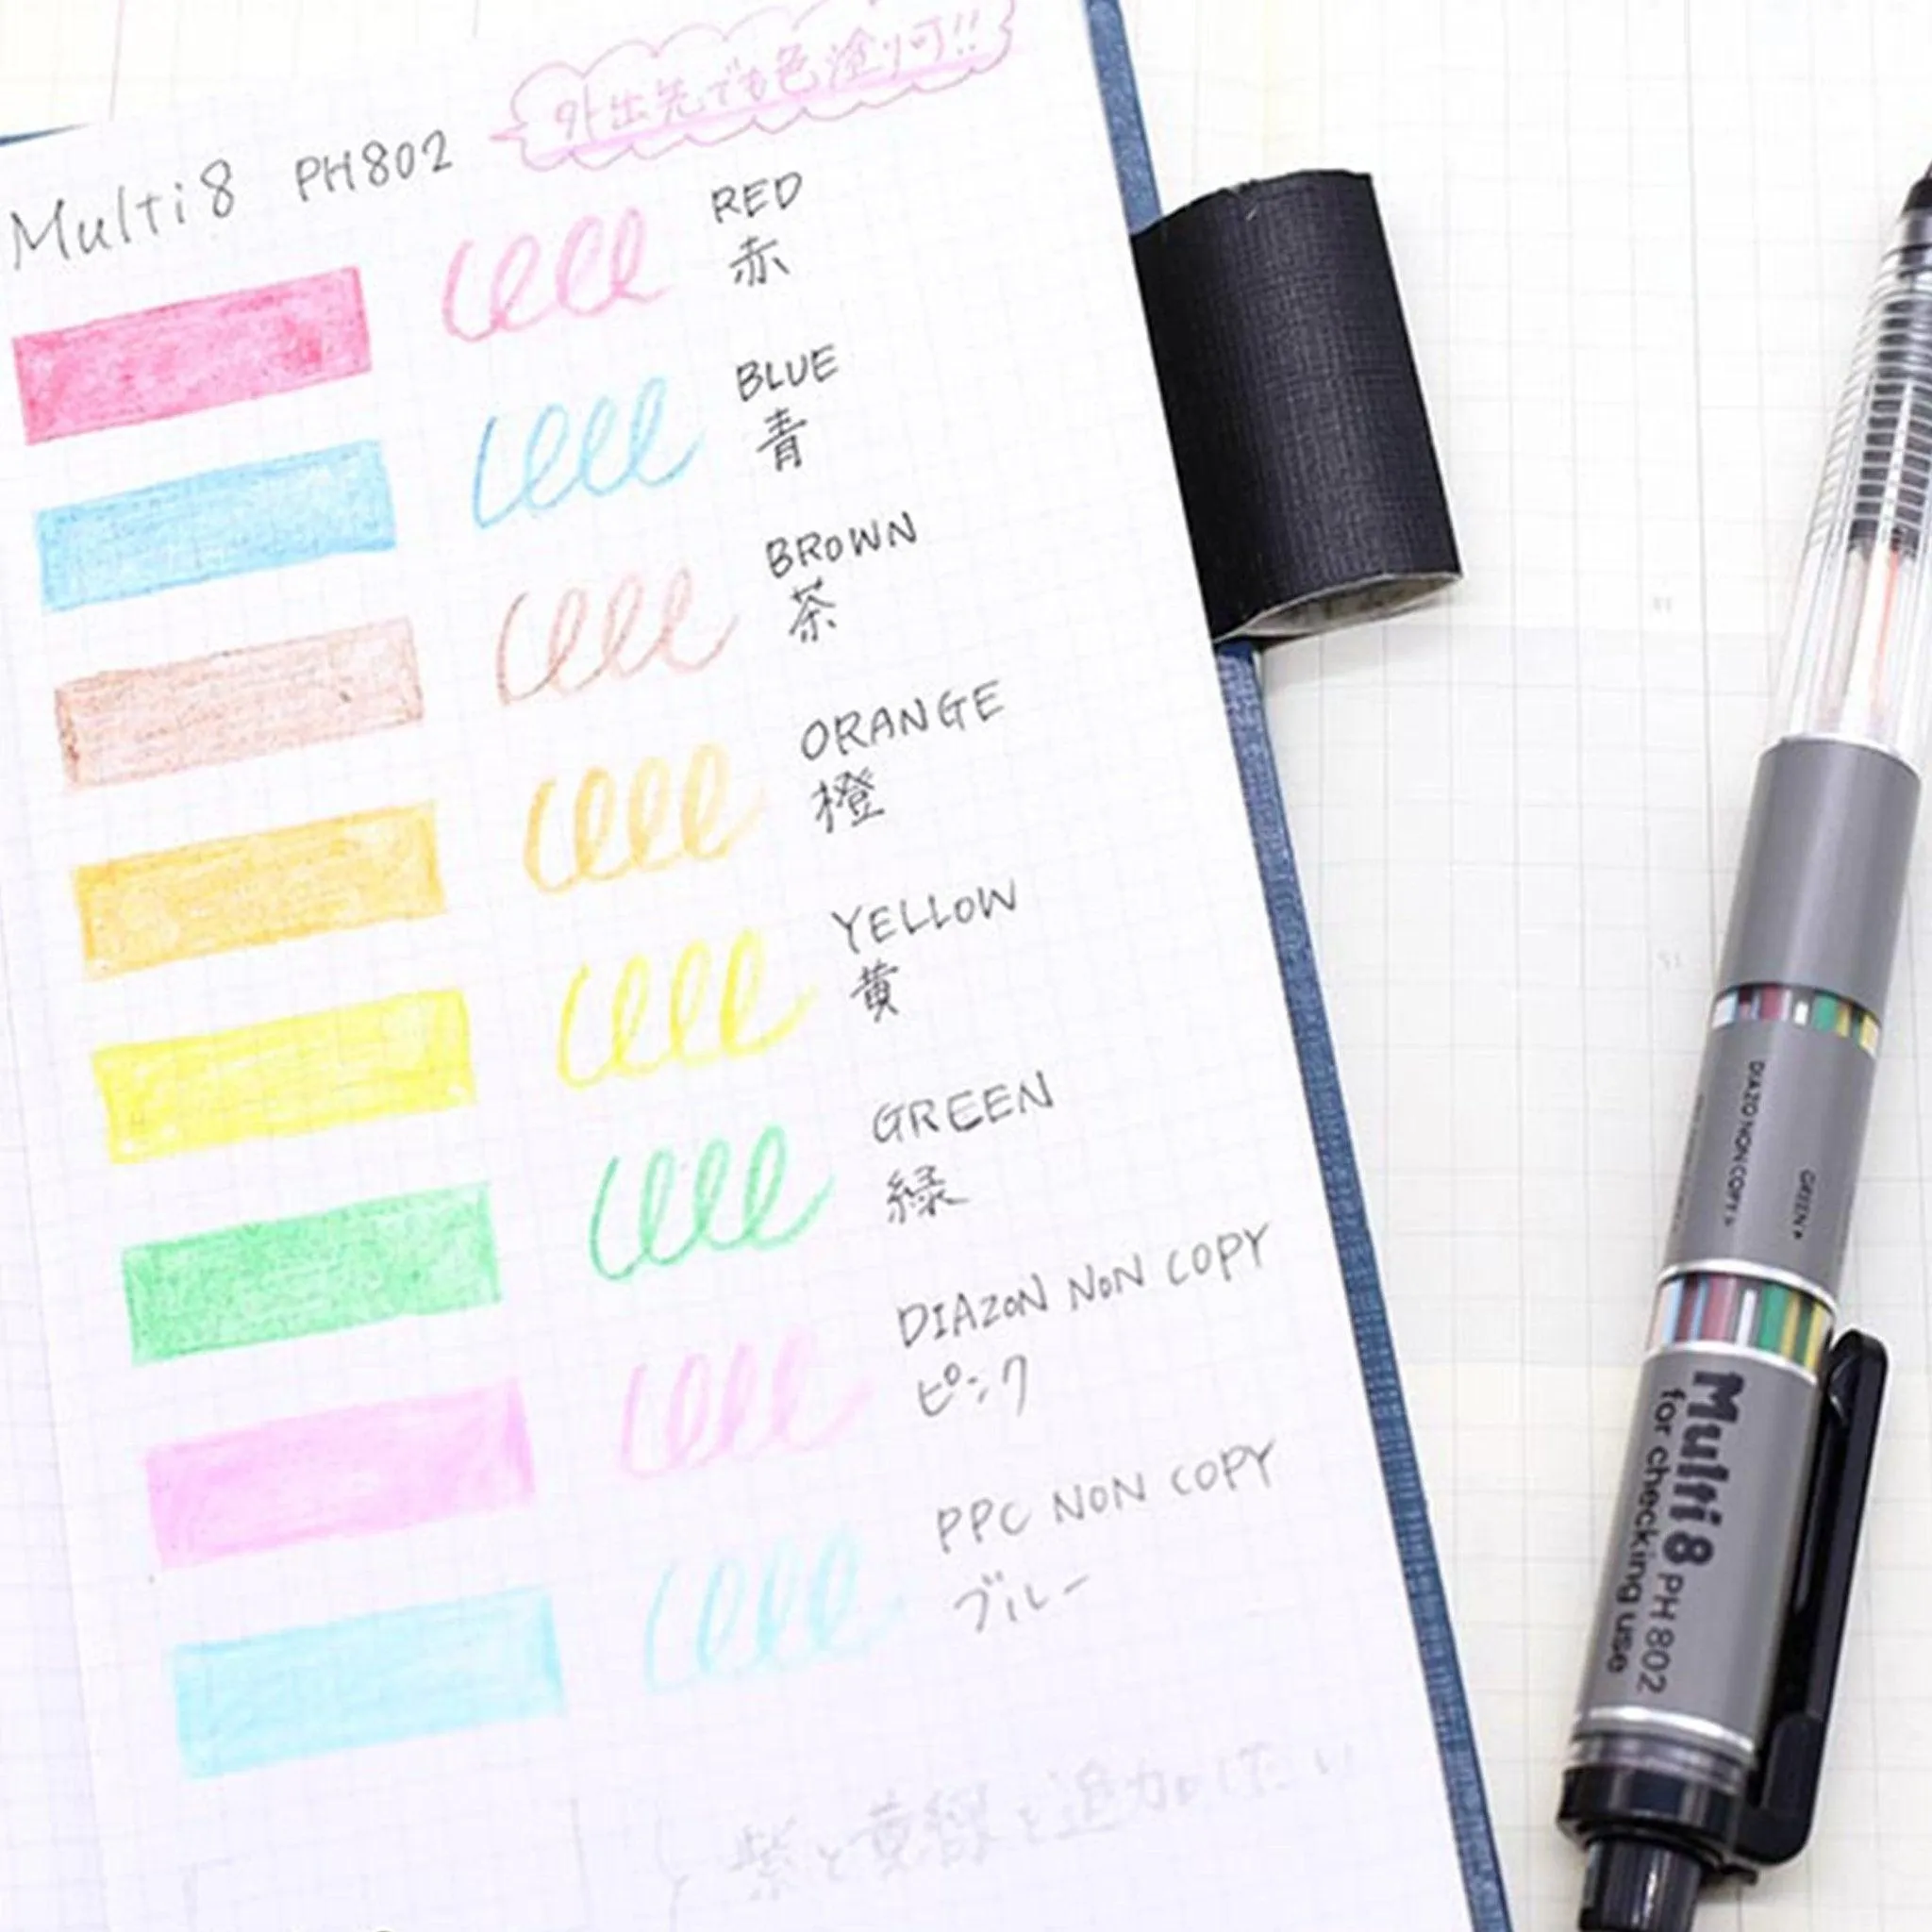 外出先でも色塗り可!!
Multi8 PH802
RED
赤
BLUE
青
BROWN
茶
ORANGE
橙
YELLOW
黄
GREEN
緑
DIAZON NON COPY
ピンク
PPC NON COPY
ブルー
紫と黄緑を追加したい
DIAZO NON COPY
GREEN
Multi 8 PH 802
for checking use